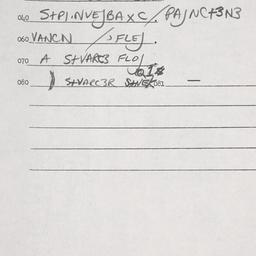 040 S+P1.NVEJBAXC/.PAJNC+3N3
060 VANCN /,FLEJ.
070 A S+VARC3 FLOJ
080 ) S+VARC3R 081 —